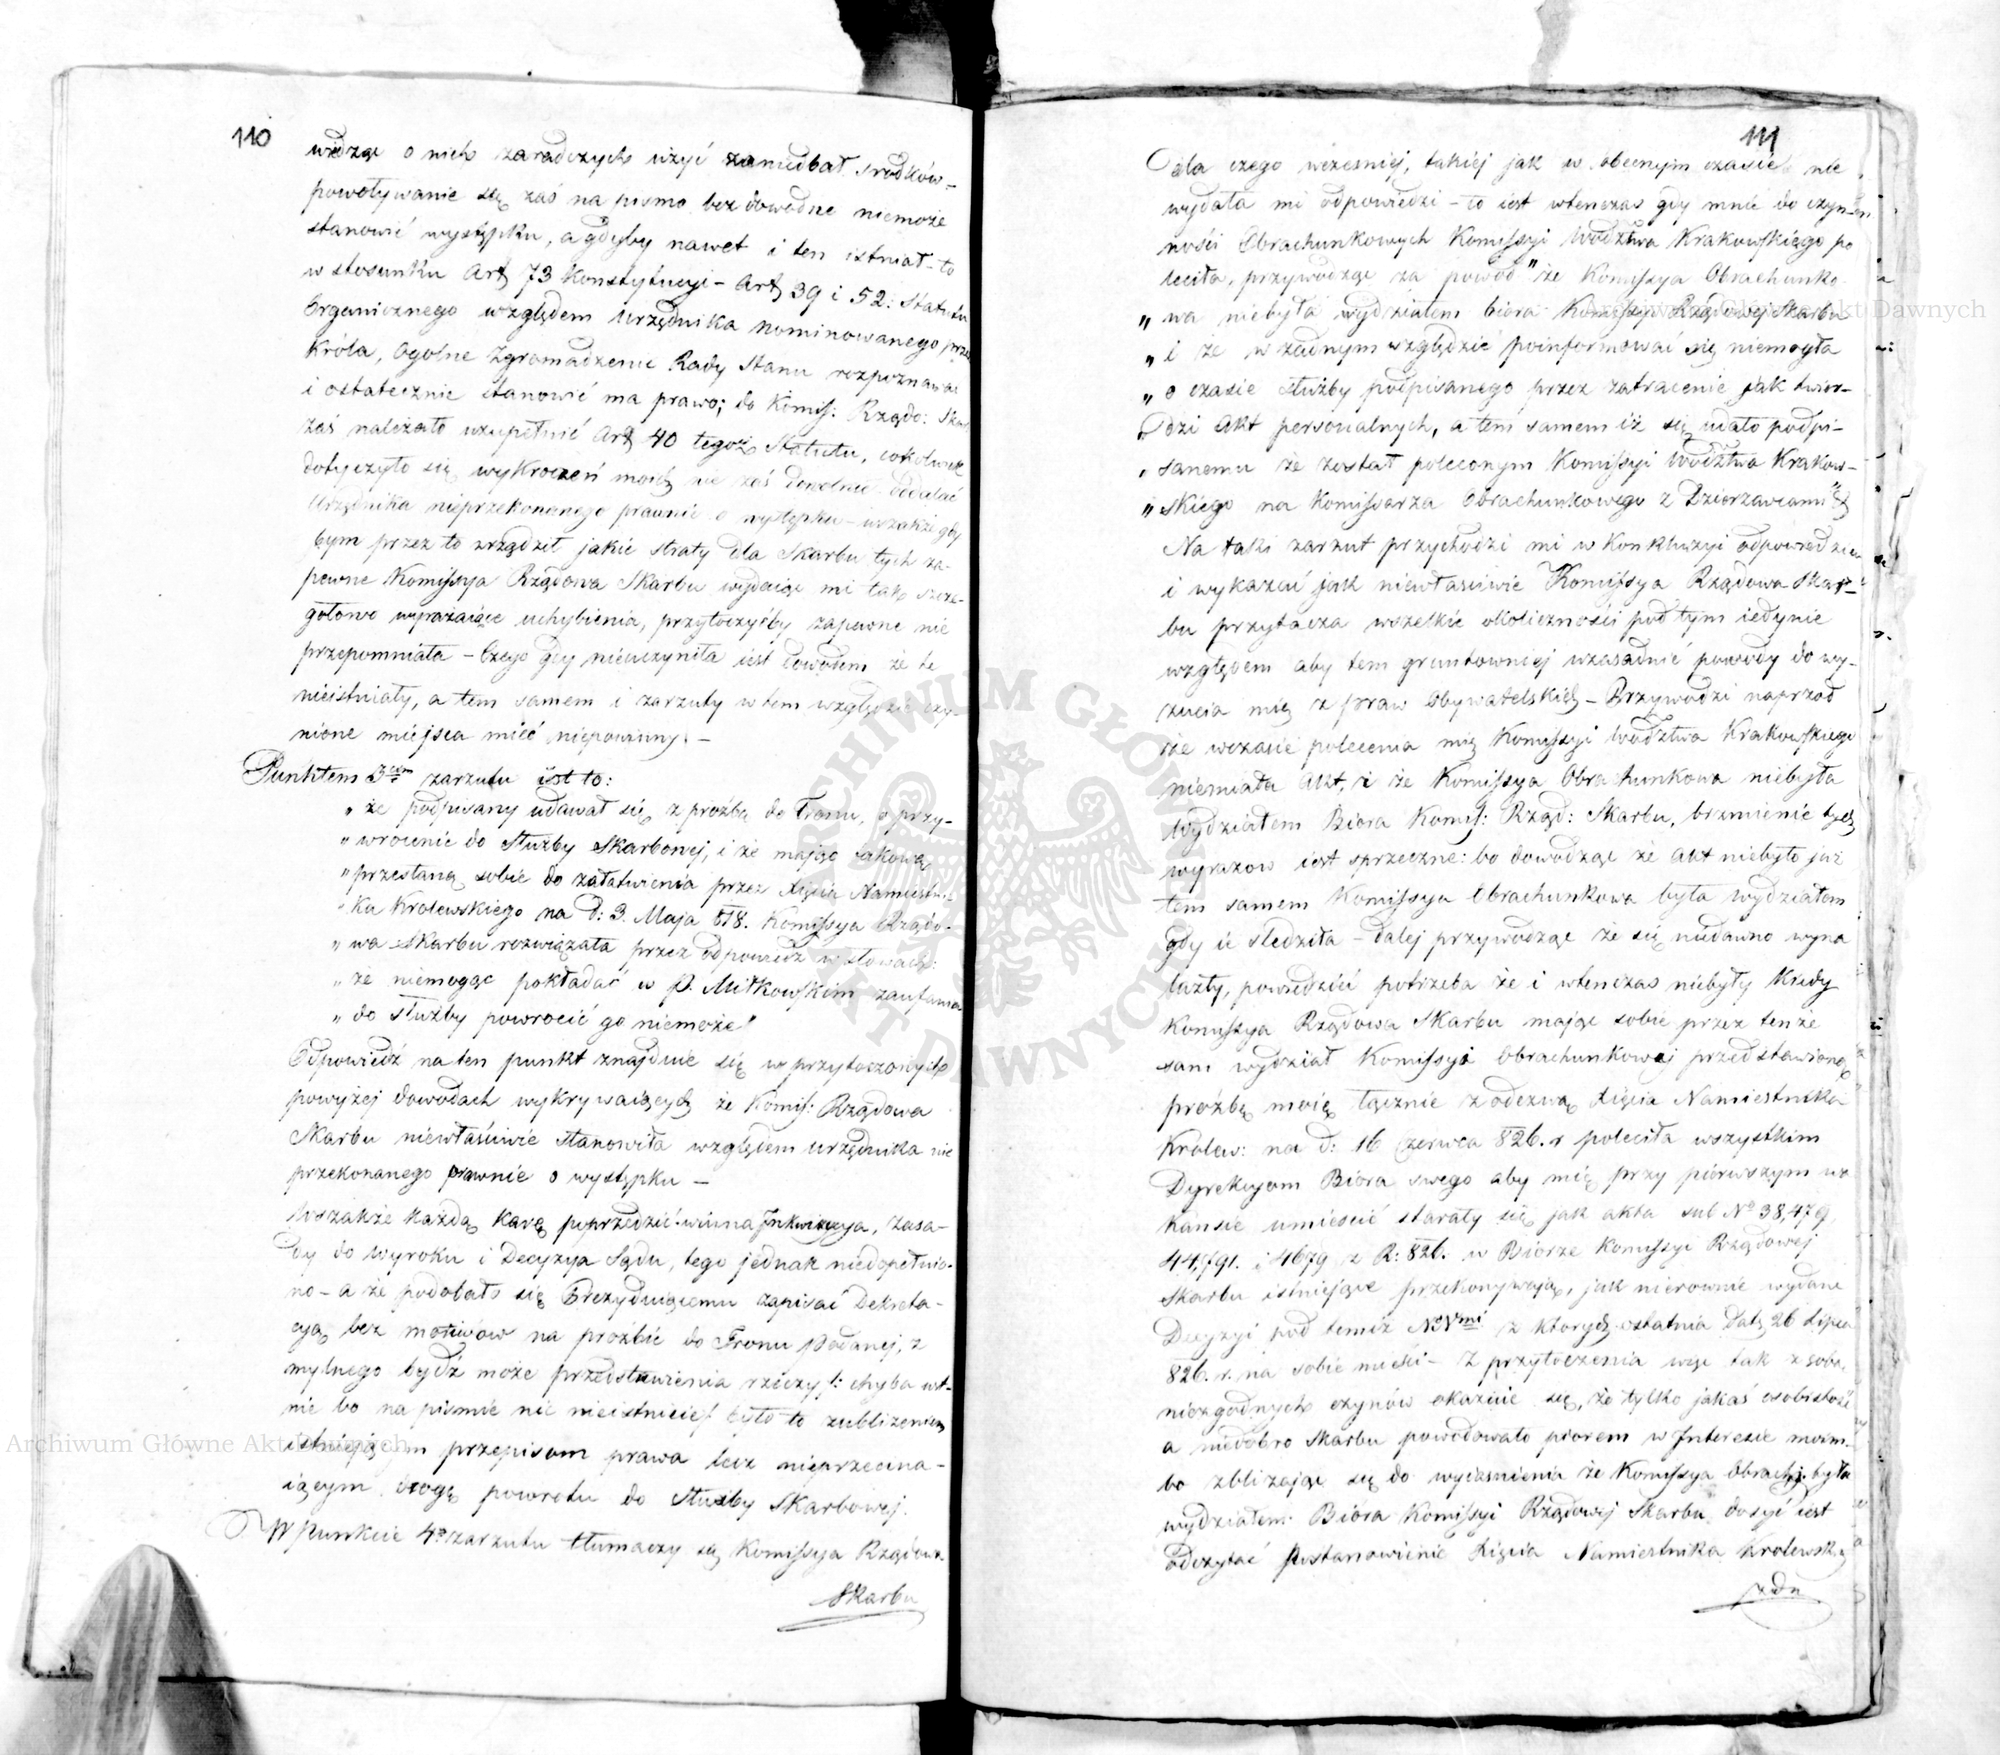 110
widząc o nich zaradczych użyć zaniedbał środków –
powoływanie się zaś na pismo bezdowodne niemoże
stanowić występku, a gdyby nawet i ten istniał – to
w stosunku Art 73 Konstytucyi – Art 39 i 52: Statutu
Organicznego względem Urzędnika nominowanego przez
Króla, Ogolne Zgromadzenie Rady Stanu rozpoznawać
i ostatecznie stanowić ma prawo; do Komiss: Rządo: Skar
zaś należało uzupełnić Art 40 tegoż Statutu, cokolwiek
dotyczyło się wykroczeń moich nie zaś dowolnie oddalać
Urzędnika nieprzekonanego prawnie o występku – wszakże gdy
bym przez to zrządził jakie straty dla Skarbu tych za-
pewne Kommissya Rządowa Skarbu wydaiąc mi tak szcze-
gołowo wyrażaiące uchybienia, przytoczyćby zapewne nie
przepomniała – Czego gdy nieuczyniła iest dowodem że te
nieistniały, a tem samem i zarzuty w tem względzie czy-
nione miejsca mieć niepowinny. –
Punktem 3cim zarzutu iest to:
„ że podpisany udawał się z proźbą do Tronu, o przy-
„ wrocenie do Służby Skarbowej, i że mając takową
„ przesłaną sobie do załatwienia przez Xięcia Namiestni-
„ ka Krolewskiego na d: 3. Maja 818. Komissya Rządo-
„ wa Skarbu rozwiązała przez odpowiedz w słowach:
„ że niemogąc pokładać w P. Miłkowskim zaufania
„ do służby powrocić go niemoże"
Odpowiedź na ten punkt znajduie się w przytoczonych
powyżej dowodach wykrywaiących że Komis: Rządowa
Skarbu niewłaściwie stanowiła względem urzędnika nie
przekonanego prawnie o występku –
Wszakże każdą karę poprzedzić winna Inkwizycya, zasa-
dy do wyroku i Decyzya Sądu, tego jednak niedopełnio-
no – a że podobało się Prezyduiącemu zapisać Dekreta-
cyą bez motiwow na proźbie do Tronu podanej, z
mylnego bydź może przedstawienia rzeczy /: chyba ust-
nie bo na pismie nic nieistnieie/ było to zubliżeniem
istniejącym przepisom prawa lecz nieprzecina-
iącym drogę powrotu do służby Skarbowej.
W punkcie 4o zarzutu tłumaczy się Komissya Rządowa
Skarbu
111
dla czego wcześniej, takiej jak w obecnym czasie nie
wydała mi odpowiedzi – to iest wtenczas gdy mnie do czyn-
ności Obrachunkowych Komissyi Wodztwa Krakowskiego po
leciła, przywodząc za powod „ że Komissya Obrachunko
„ wa niebyła wydziałem biora Komissyi Rządowej Skarbu
„ i że w żadnym względzie poinformować się niemogła
„ o czasie służby podpisanego przez zatracenie jak twier-
„ dzi Akt personalnych, a tem samem iż się udało podpi-
„ sanemu że został poleconym Komissyi Wodztwa Krakow-
„ skiego na Komissarza Obrachunkowego z Dzierzawcami"
Na taki zarzut przychodzi mi w Konkluzyi odpowiedzieć
i wykazać jak niewłaściwie Komissya Rządowa Skar-
bu przytacza wszelkie okoliczności pod tym iedynie
względem aby tem gruntowniej uzasadnić powody do wy-
zucia mię z praw Obywatelskich – Przywodzi naprzod
że wczasie polecenia mię Komissyi Wodztwa Krakowskiego
niemiała Akt, i że Komissya Obrachunkowa niebyła
Wydziałem Biora Komis: Rząd: Skarbu, brzmienie tych
wyrazow iest sprzeczne: bo dowodząc że Akt niebyło już
tem samem Komissya Obrachunkowa była wydziałem
gdy ie śledziła – dalej przywodząc że się niedawno wyna
lazły, powiedzieć potrzeba że i wtenczas niebyły kiedy
Komissya Rządowa Skarbu mając sobie przez tenże
sam wydział Komissyi Obrachunkowej przedstawioną
proźbę moię łącznie z odezwą Xięcia Namiestnika
Krolew: na d: 16 Czerwca 826. r poleciła wszystkim
Dyrekcyom Biora swego aby mię przy pierwszym wa
kansie umieścić starały się jak akta sub No 38,479,
44,791. i 4679 z R: 826. w Biorze Komissyi Rządowej
Skarbu istniejące przekonywają, jak nierownie wydane
Decyzyi pod temiż NNrmi z których ostatnia datę 26 Lipca
826. r. na sobie mieści – Z przytoczenia więc tak z sobą
niezgodnych czynów okazuie się, że tylko jakaś osobistość
a niedobro Skarbu powodowało piorem w Interesie moim –
bo zbliżając się do wyiasnienia że Komissya Obrach: była
wydziałem Biora Komissyi Rządowej Skarbu dosyć iest
odczytać Postanowienie Xięcia Namiestnika Krolewsk:
z dn
ARCHIWUM GŁÓWNE AKT DAWNYCH
Archiwum Główne Akt Dawnych
Archiwum Główne Akt Dawnych